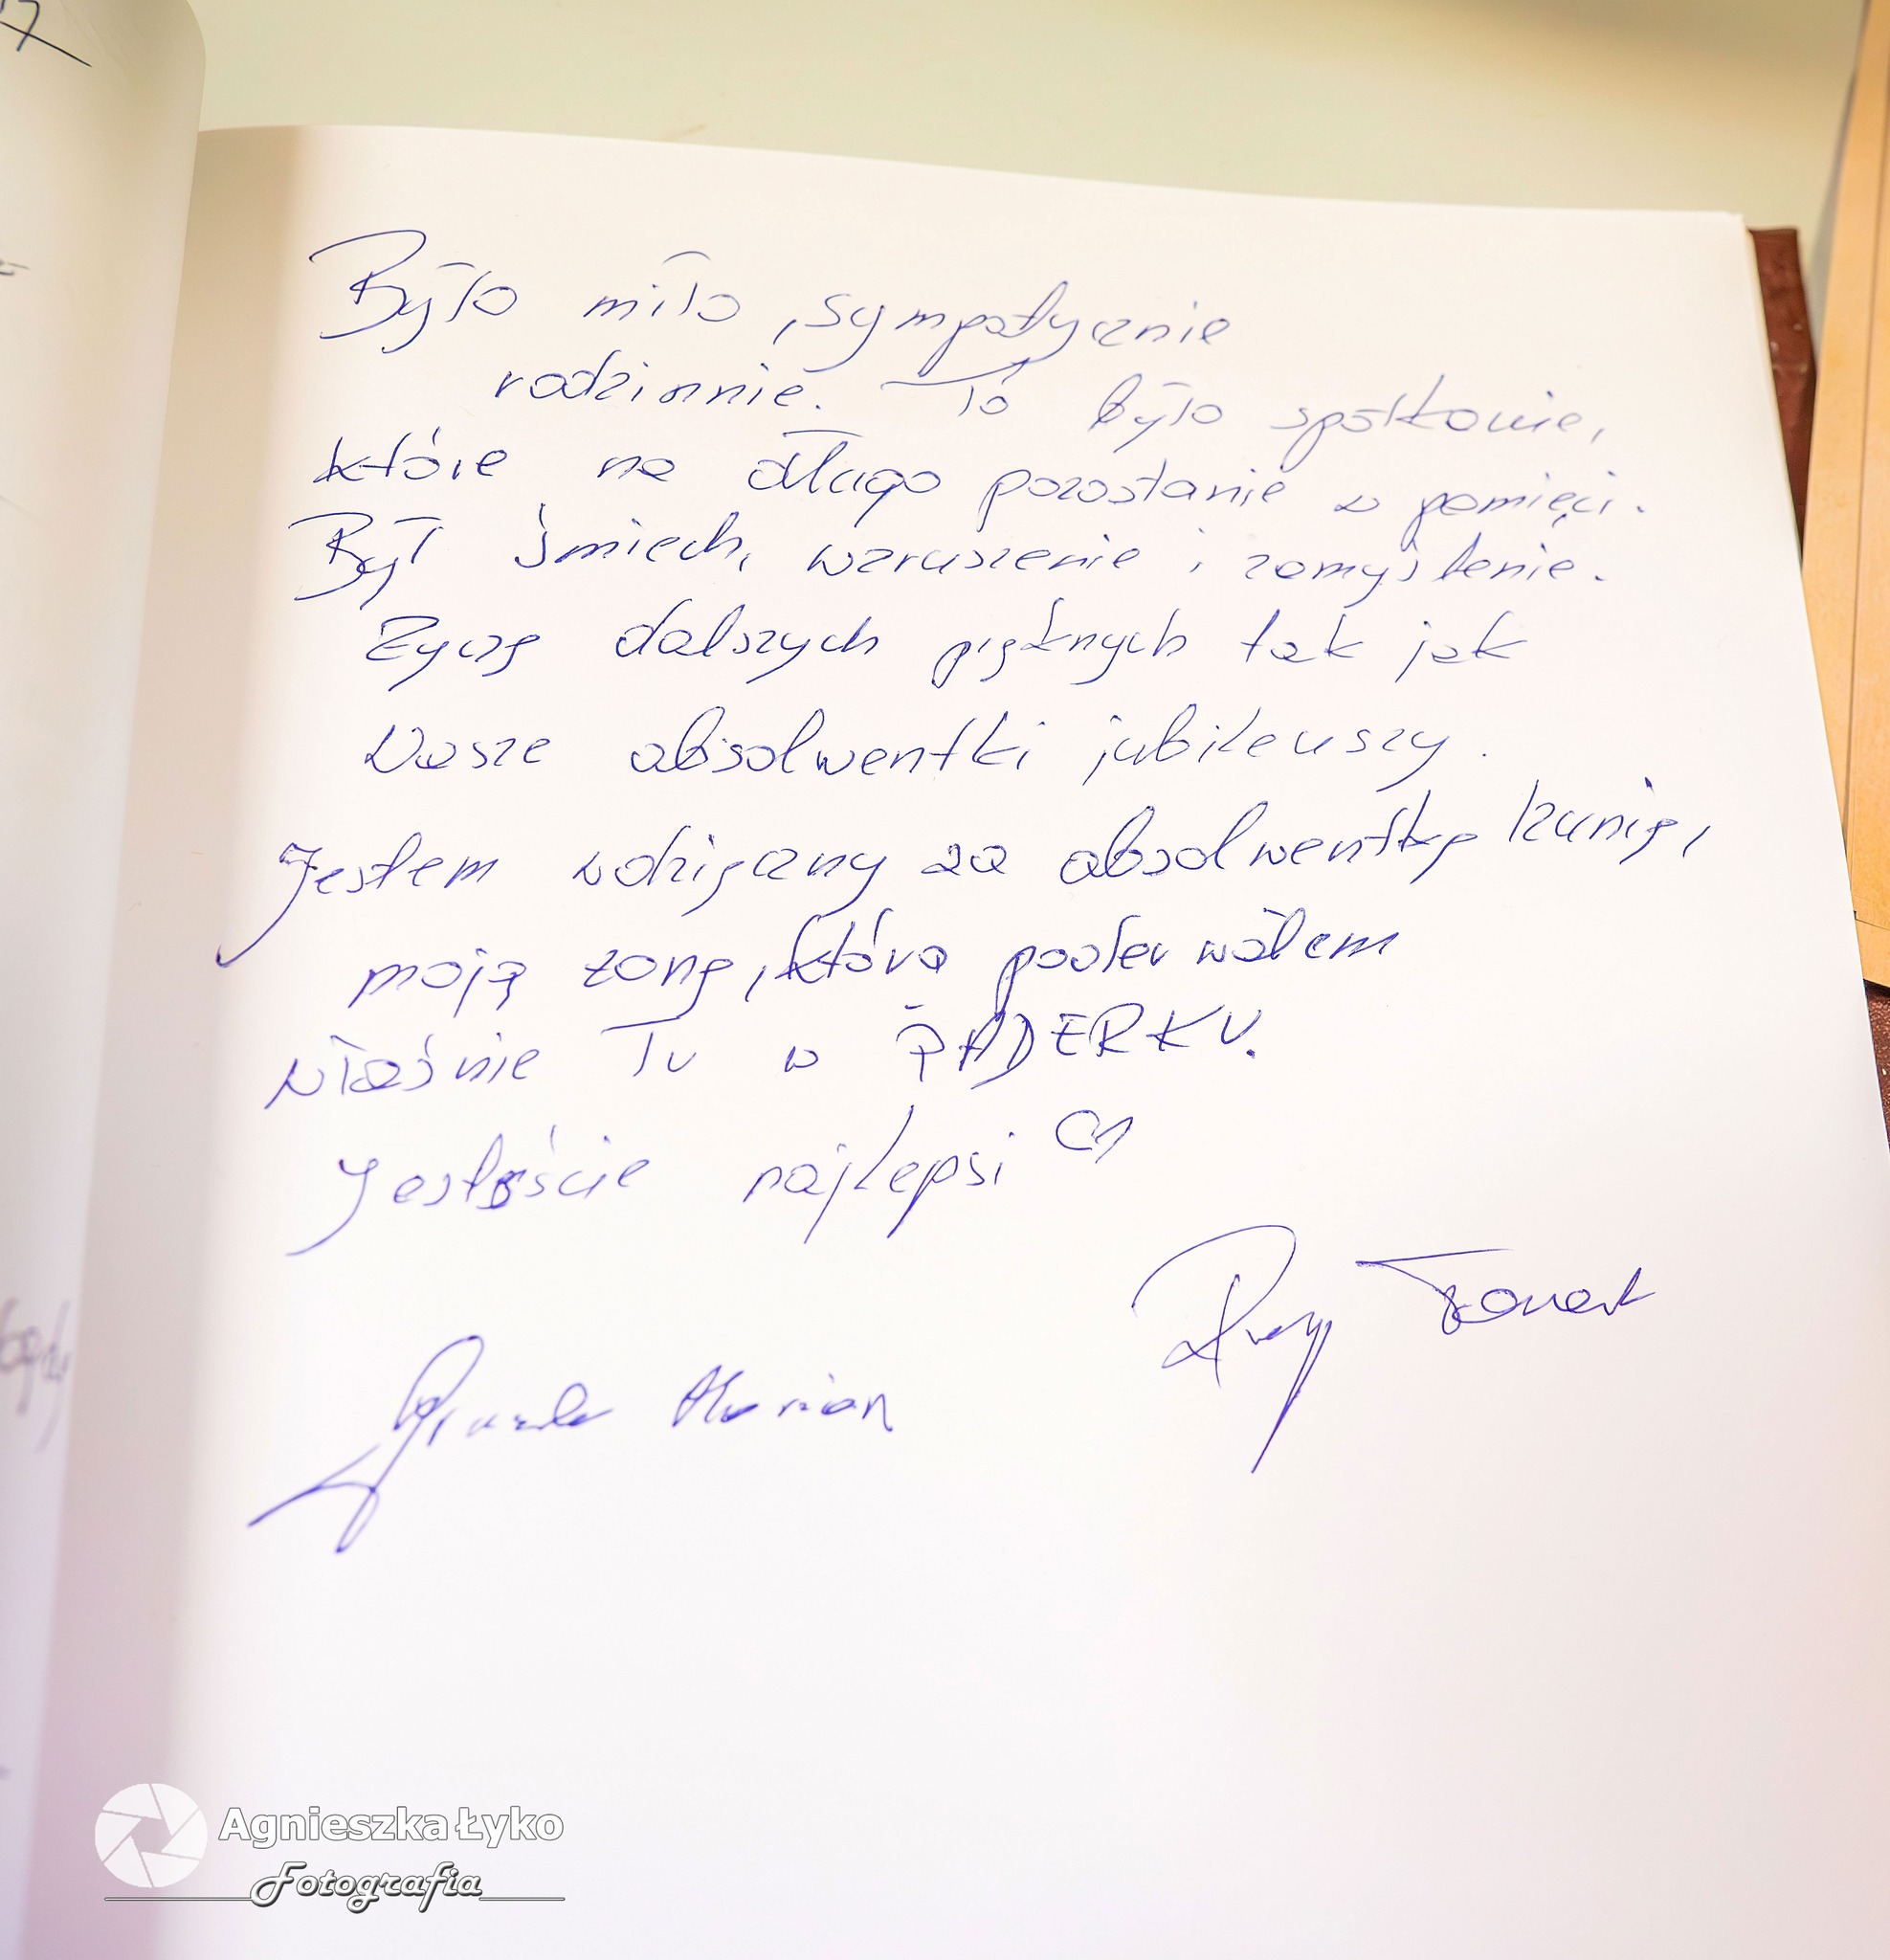 7
Było miło, sympatycznie
rodzinnie. To było spotkanie,
które na długo pozostanie w pamięci.
Był śmiech, wzruszenie i zamyślenie.
Życzę dalszych pięknych tak jak
Wasze absolwentki jubileuszy.
Jestem wdzięczny za absolwentkę
moją żonę, którą poderwałem
właśnie Tu w PADERKU.
Jesteście najlepsi
Marian
Agnieszka Łyko
Fotografia